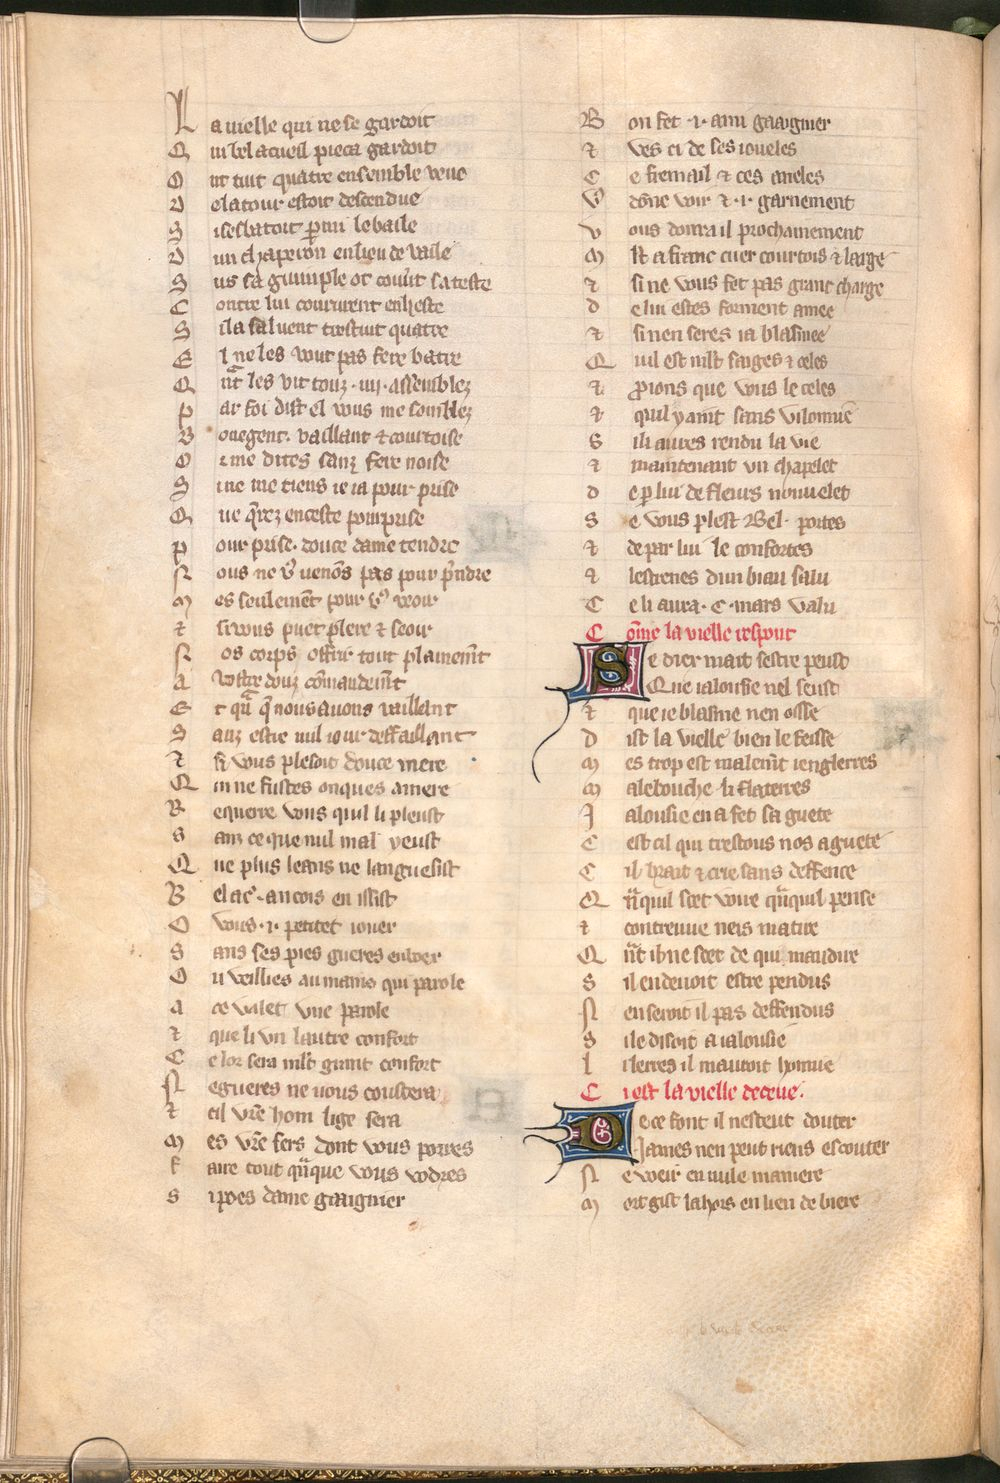 La vielle qui ne se gardoit
Qui bel acueil pieca gardoit
O uit tuit quatre ensemble venc
D e la tour estoit descendue
S i sesbatoit p̱mi le baile
D un chaperon en lieu de vaile
S us sa guimple ot couv̾t sa teste
C ontre lui coururent enheste
S i la saluent trestuit quatre
E l ne les vout pas fere batre
Q nt̾ les vit touz ·iiij· assemblez
P ar foi dist el vous me semblez
B onegent. vaillant ⁊ courtoise
O r me dites sanz fere noise
S i ne me tiens ie ia pour prise
Q ue q̃rez enceste pourprise
P our prise. douce dame tendre
N ous ne v̾ venõs pas pour p̾ndre
M es seulemẽt pour v̾ veoir
⁊ si vous puet plere ⁊ seoir
N os corps offrir tout plainem̃t
A vostre douz cõmandem̃t
E t qũ q̾ nous auons vaillant
S anz estre nul iour deffaillant
⁊ si vous plesoit douce mere
Q ui ne fustes onques amere
R equerre vous quil li pleust
S anz ce que nul mal y eust
Q ue plus leans ne languesist
B el ac̾. ancois en issist
O vous ·i· petitet iouer
S ans ses pies gueres enboer
O u veillies au mains qui parole
A ce valet vne parole
⁊ que li vn lautre confort
C e lor sera ml̾t grant confort
N e gueres ne vous coustera
⁊ cil vr̃e hom lige sera
M es vr̃e sers dont vous porres
F aire tout qũque vous vodres
S i poes dame gaaignier
B on fet ·i· ami gaaignier
⁊ ves ci de ses ioueles
C e fremail ⁊ ces aneles
V̾ dõne voir ⁊ ·i· garnement
V ous donra il prochainement
M lt̾ a franc cuer courtois ⁊ large
⁊ si ne vous fet pas grant charge
D e lui estes forment amee
⁊ si nen seres ia blasmee
Q uil est ml̾t saiges ⁊ celes
⁊ prions que vous le celes
⁊ quil y aint sans vilonnie
S i li aures rendu la vie
⁊ maintenant vn chapelet
D e p̱ lui de fleurs nouuelet
S e vous plest Bel· portes
⁊ de par lui le confortes
⁊ lestrenes dun biau salu
C e li aura · C · mars valu
C õme la vielle respont
Se diex mait sestre peust
Que ialousie nel seust
⁊ que ie blasme nen oisse
D ist la vielle bien le feisse
M es trop est malem̃t iengleres
M alebouche li flateres
J alousie en a fet sa guete
C est cil qui trestous nos aguete
C il brait ⁊ crie sans deffence
Q ñquil scet voire qũquil pense
⁊ contreuue neis matire
Q ñt il ne scet de qui maudire
S il en deuoit estre pendus
N en seroit il pas deffendus
S i le disoit a ialousie
L i lerres il mauroit honnie
C i est la vielle deceue.
De ce font il nesteut douter
James nen peut riens escouter
N e veir en nule maniere
M ort gist la hors en lieu de biere